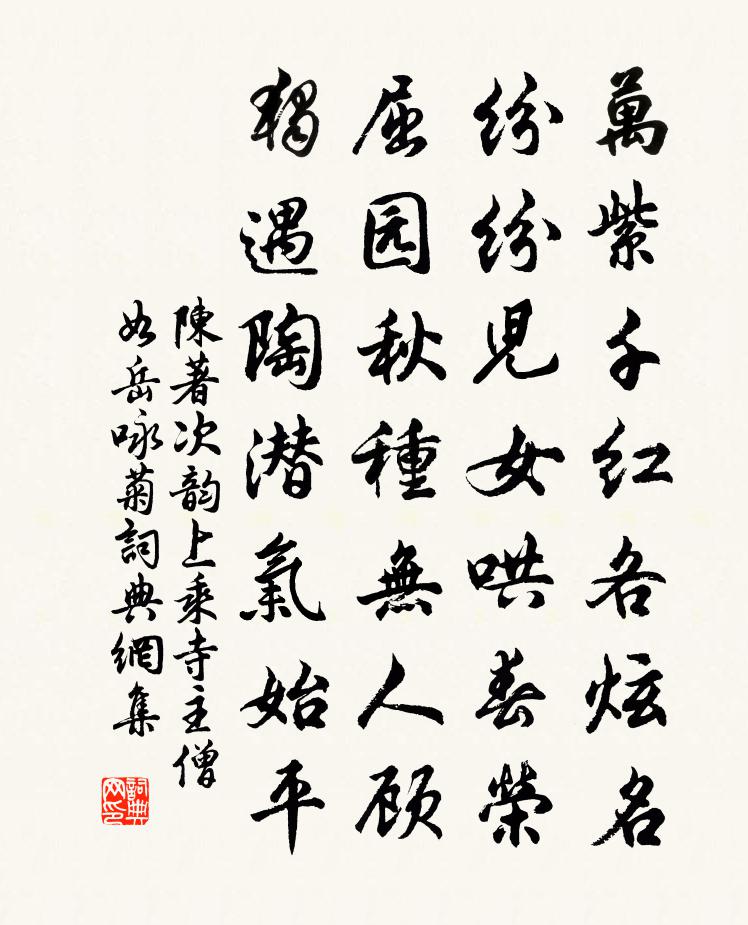 萬紫千红各炫名
紛紛兒女哄春榮
屈园秋種無人顾
独遇陶潜氣始平
陳著次韵上乘寺主僧
如岳咏菊詞典網集
詞典网印